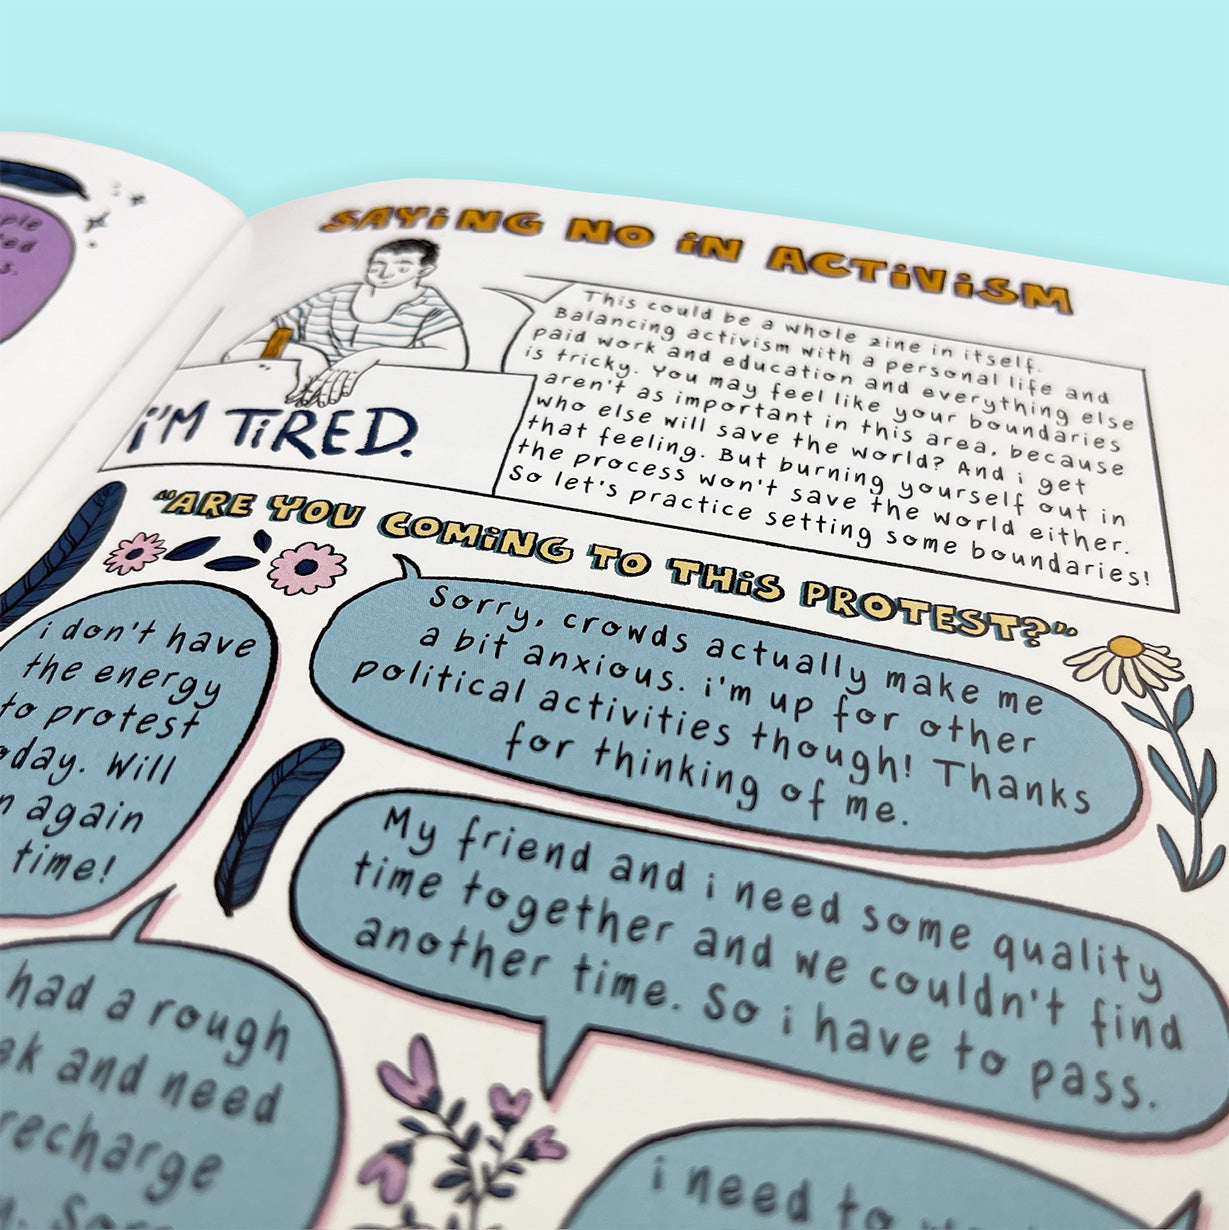 SAYiNG NO iN ACTiViSM
This could be a whole zine in itself.
Balancing activism with a personal life and
paid work and education and everything else
is tricky. You may feel like your boundaries
aren't as important in this area, because
who else will save the world? And i get
that feeling. But burning yourself out in
the process won't save the world either.
So let's practice setting some boundaries!
i'M TiRED.
"ARE YOU COMiNG TO THiS PROTEST?"
i don't have
the energy
to protest
Will
again
time!
Sorry, crowds actually make me
a bit anxious. i'm up for other
political activities though! Thanks
for thinking of me.
My friend and i need some quality
time together and we couldn't find
another time. So i have to pass.
had a rough
and need
recharge
i need to